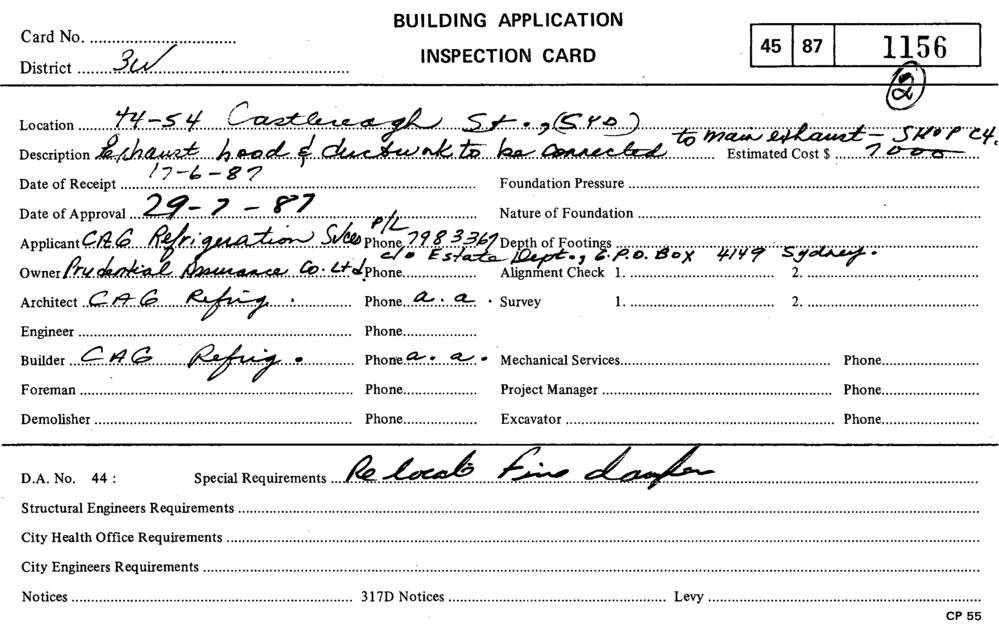 BUILDING APPLICATION
INSPECTION CARD
Card No.
45 87 1156
District 3W
2
Location 44-54 Castlereagh St., (SYD)
Description Exhaust hood & ductwork to be connected to main exhaust - SHOP C4. Estimated Cost $ 7000
Date of Receipt 17-6-87 Foundation Pressure
Date of Approval 29-7-87 Nature of Foundation
Applicant CAG Refrigeration Svces P/L Phone 7983367 Depth of Footings
Owner Prudential Assurance Co. Ltd Phone c/o Estate Dept., G.P.O. Box 4149 Sydney. Alignment Check 1. 2.
Architect CAG Refrig. Phone a.a. Survey 1. 2.
Engineer Phone
Builder CAG Refrig. Phone a.a. Mechanical Services Phone
Foreman Phone Project Manager Phone
Demolisher Phone Excavator Phone
D.A. No. 44 : Special Requirements Relocate Fire damper
Structural Engineers Requirements
City Health Office Requirements
City Engineers Requirements
Notices 317D Notices Levy
CP 55